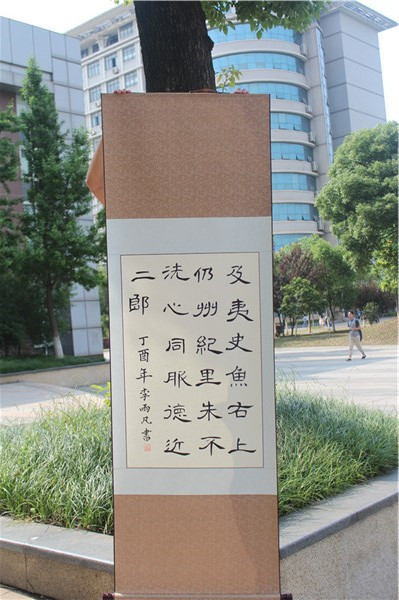 及夷史魚右上
仍州紀里朱不
洗心同服德近
二郎
丁酉年李雨凡書